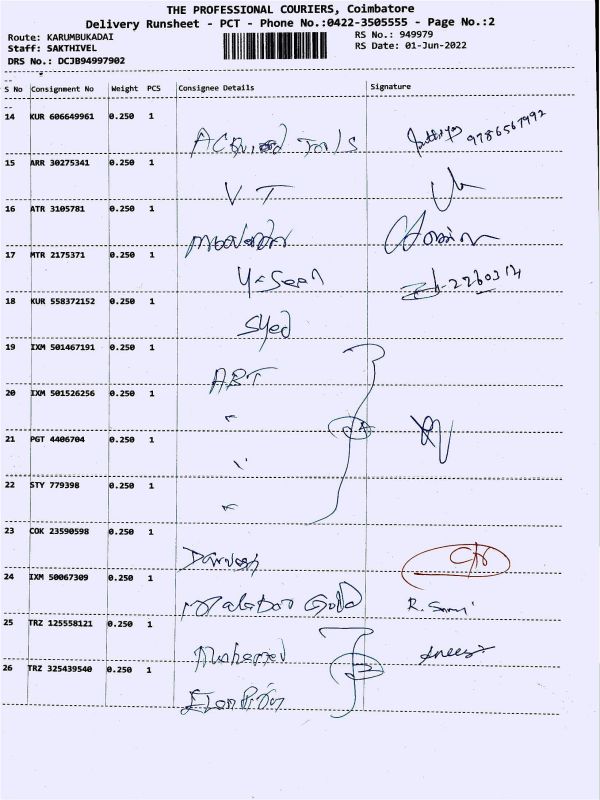 THE PROFESSIONAL COURIERS, Coimbatore
Delivery Runsheet - PCT - Phone No.:0422-3505555 - Page No.:2
Route: KARUMBUKADAI RS No.: 949979
Staff: SAKTHIVEL RS Date: 01-Jun-2022
DRS No.: DCJB94997902
S No Consignment No Weight PCS Consignee Details Signature
14 KUR 606649961 0.250 1
Tools 9786567992
15 ARR 30275341 0.250 1
V T
16 ATR 3105781 0.250 1
17 MTR 2175371 0.250 1
Yaseen
18 KUR 558372152 0.250 1
Syed
19 IXM 501467191 0.250 1
ABT
20 IXM 501526256 0.250 1
"
21 PGT 4406704 0.250 1
"
22 STY 779398 0.250 1
"
23 COK 23590598 0.250 1
24 IXM 50067309 0.250 1
Malabar Gold
25 TRZ 125558121 0.250 1
26 TRZ 325439540 0.250 1